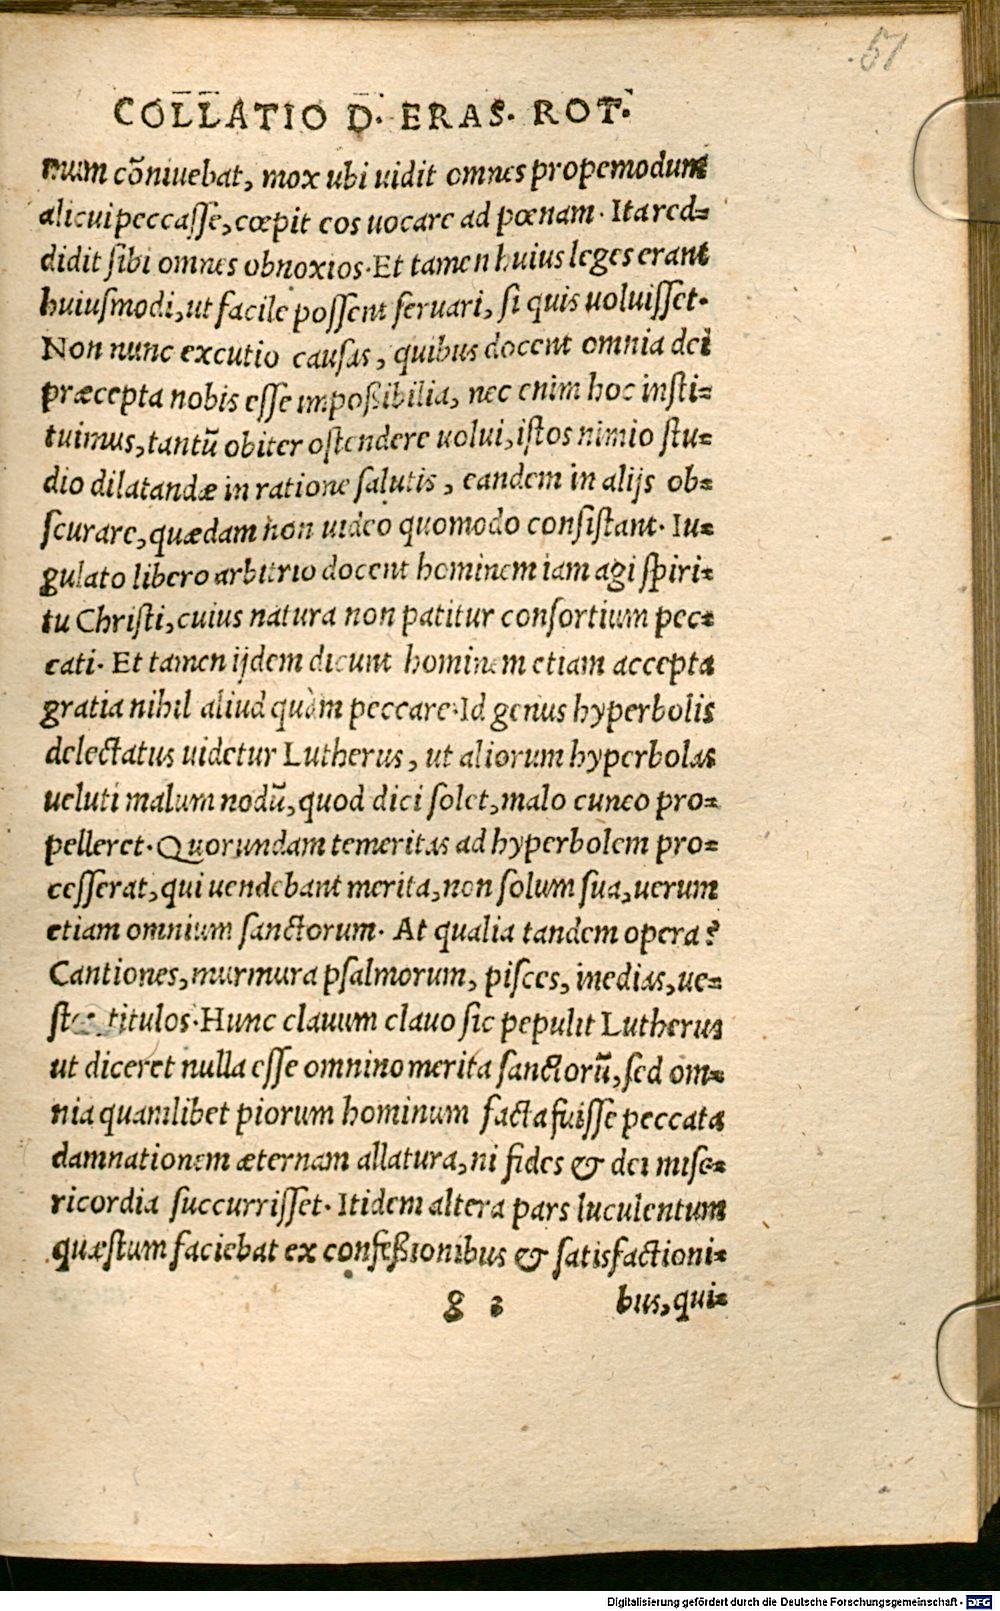 57
COLLATIO D. ERAS. ROT.
num cōniuebat, mox ubi uidit omnes propemodum
alicui peccasse, cœpit eos uocare ad pœnam. Ita red=
didit sibi omnes obnoxios. Et tamen huius leges erant
huiusmodi, ut facile possent seruari, si quis uoluisset.
Non nunc excutio causas, quibus docent omnia dei
præcepta nobis esse impoßibilia, nec enim hoc insti=
tuimus, tantū obiter ostendere uolui, istos nimio stu=
dio dilatandæ in ratione salutis, eandem in alijs ob=
scurare, quædam non uideo quomodo consistant. Iu=
gulato libero arbitrio docent hominem iam agi spiri=
tu Christi, cuius natura non patitur consortium pec=
cati. Et tamen ijdem dicunt hominem etiam accepta
gratia nihil aliud quàm peccare. Id genus hyperbolis
delectatus uidetur Lutherus, ut aliorum hyperbolas
ueluti malum nodū, quod dici solet, malo cuneo pro=
pelleret. Quorundam temeritas ad hyperbolem pro=
cesserat, qui uendebant merita, non solum sua, uerum
etiam omnium sanctorum. At qualia tandem opera?
Cantiones, murmura psalmorum, pisces, inedias, ue=
titulos. Hunc clauum clauo sic pepulit Lutherus
ut diceret nulla esse omnino merita sanctorū, sed om=
nia quamlibet piorum hominum facta fuisse peccata
damnationem æternam allatura, ni fides & dei mise=
ricordia succurrisset. Itidem altera pars luculentum
quæstum faciebat ex confeßionibus & satisfactioni=
g 2 bus, qui=
Digitalisierung gefördert durch die Deutsche Forschungsgemeinschaft - DFG